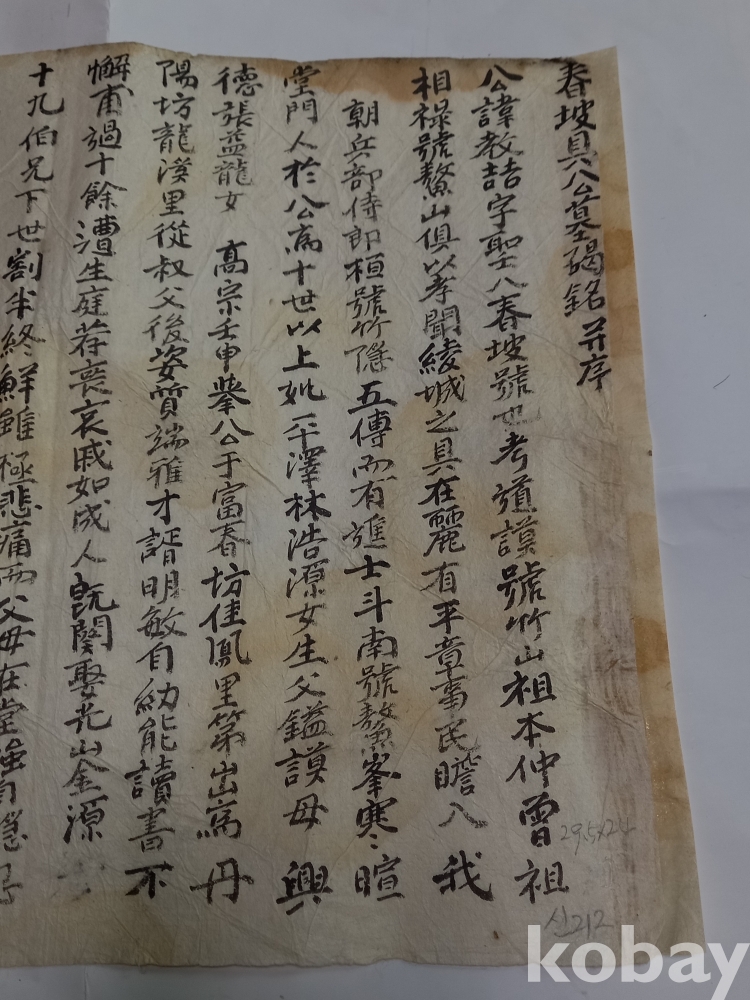 春坡具公墓碣銘 并序
公諱教喆字聖八春坡號也考道謨號竹山祖本仲曾祖
相祿號鰲山俱以孝聞綾城之具在麗有平章事民瞻入我
朝兵部侍郎楨號竹隱五傳而有進士斗南號鰲峯寒〻暄
堂門人於公爲十世以上妣平澤林浩源女生父鎰謨母興
德張益龍女 高宗壬申擧公于富春坊佳鳳里第出爲丹
陽坊龍溪里從叔父後姿質端雅才諝明敏自幼能讀書不
懈甫過十餘遭生庭荐喪哀戚如成人旣闋娶光山金源
十九伯兄下世割半終鮮雖極悲痛而父母在堂強自
29.5x24
신212
kobay